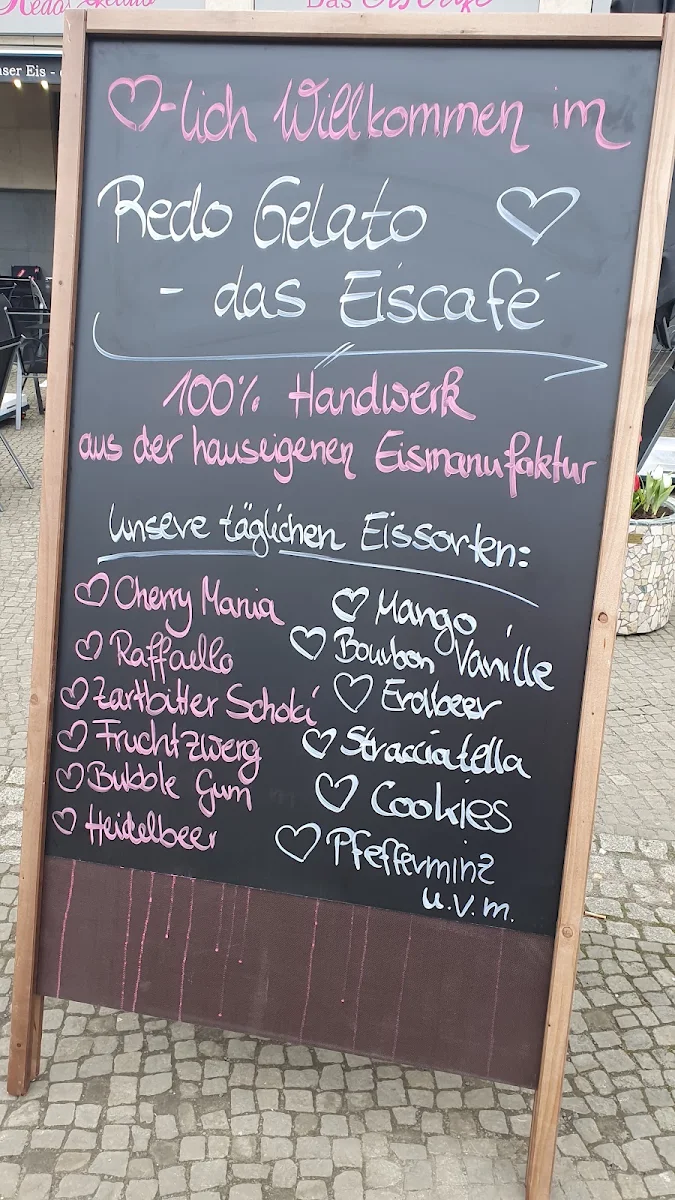 Redo Gelato
Das Eiscafé
ser Eis -
♡-lich Willkommen im
Redo Gelato ♡
- das Eiscafé
100% Handwerk
aus der hauseigenen Eismanufaktur
Unsere täglichen Eissorten:
♡ Cherry Mania
♡ Raffaello
♡ Zartbitter Schoki
♡ Fruchtzwerg
♡ Bubble Gum
♡ Heidelbeer
♡ Mango
♡ Bourbon Vanille
♡ Erdbeer
♡ Stracciatella
♡ Cookies
♡ Pfefferminz
u.v.m.